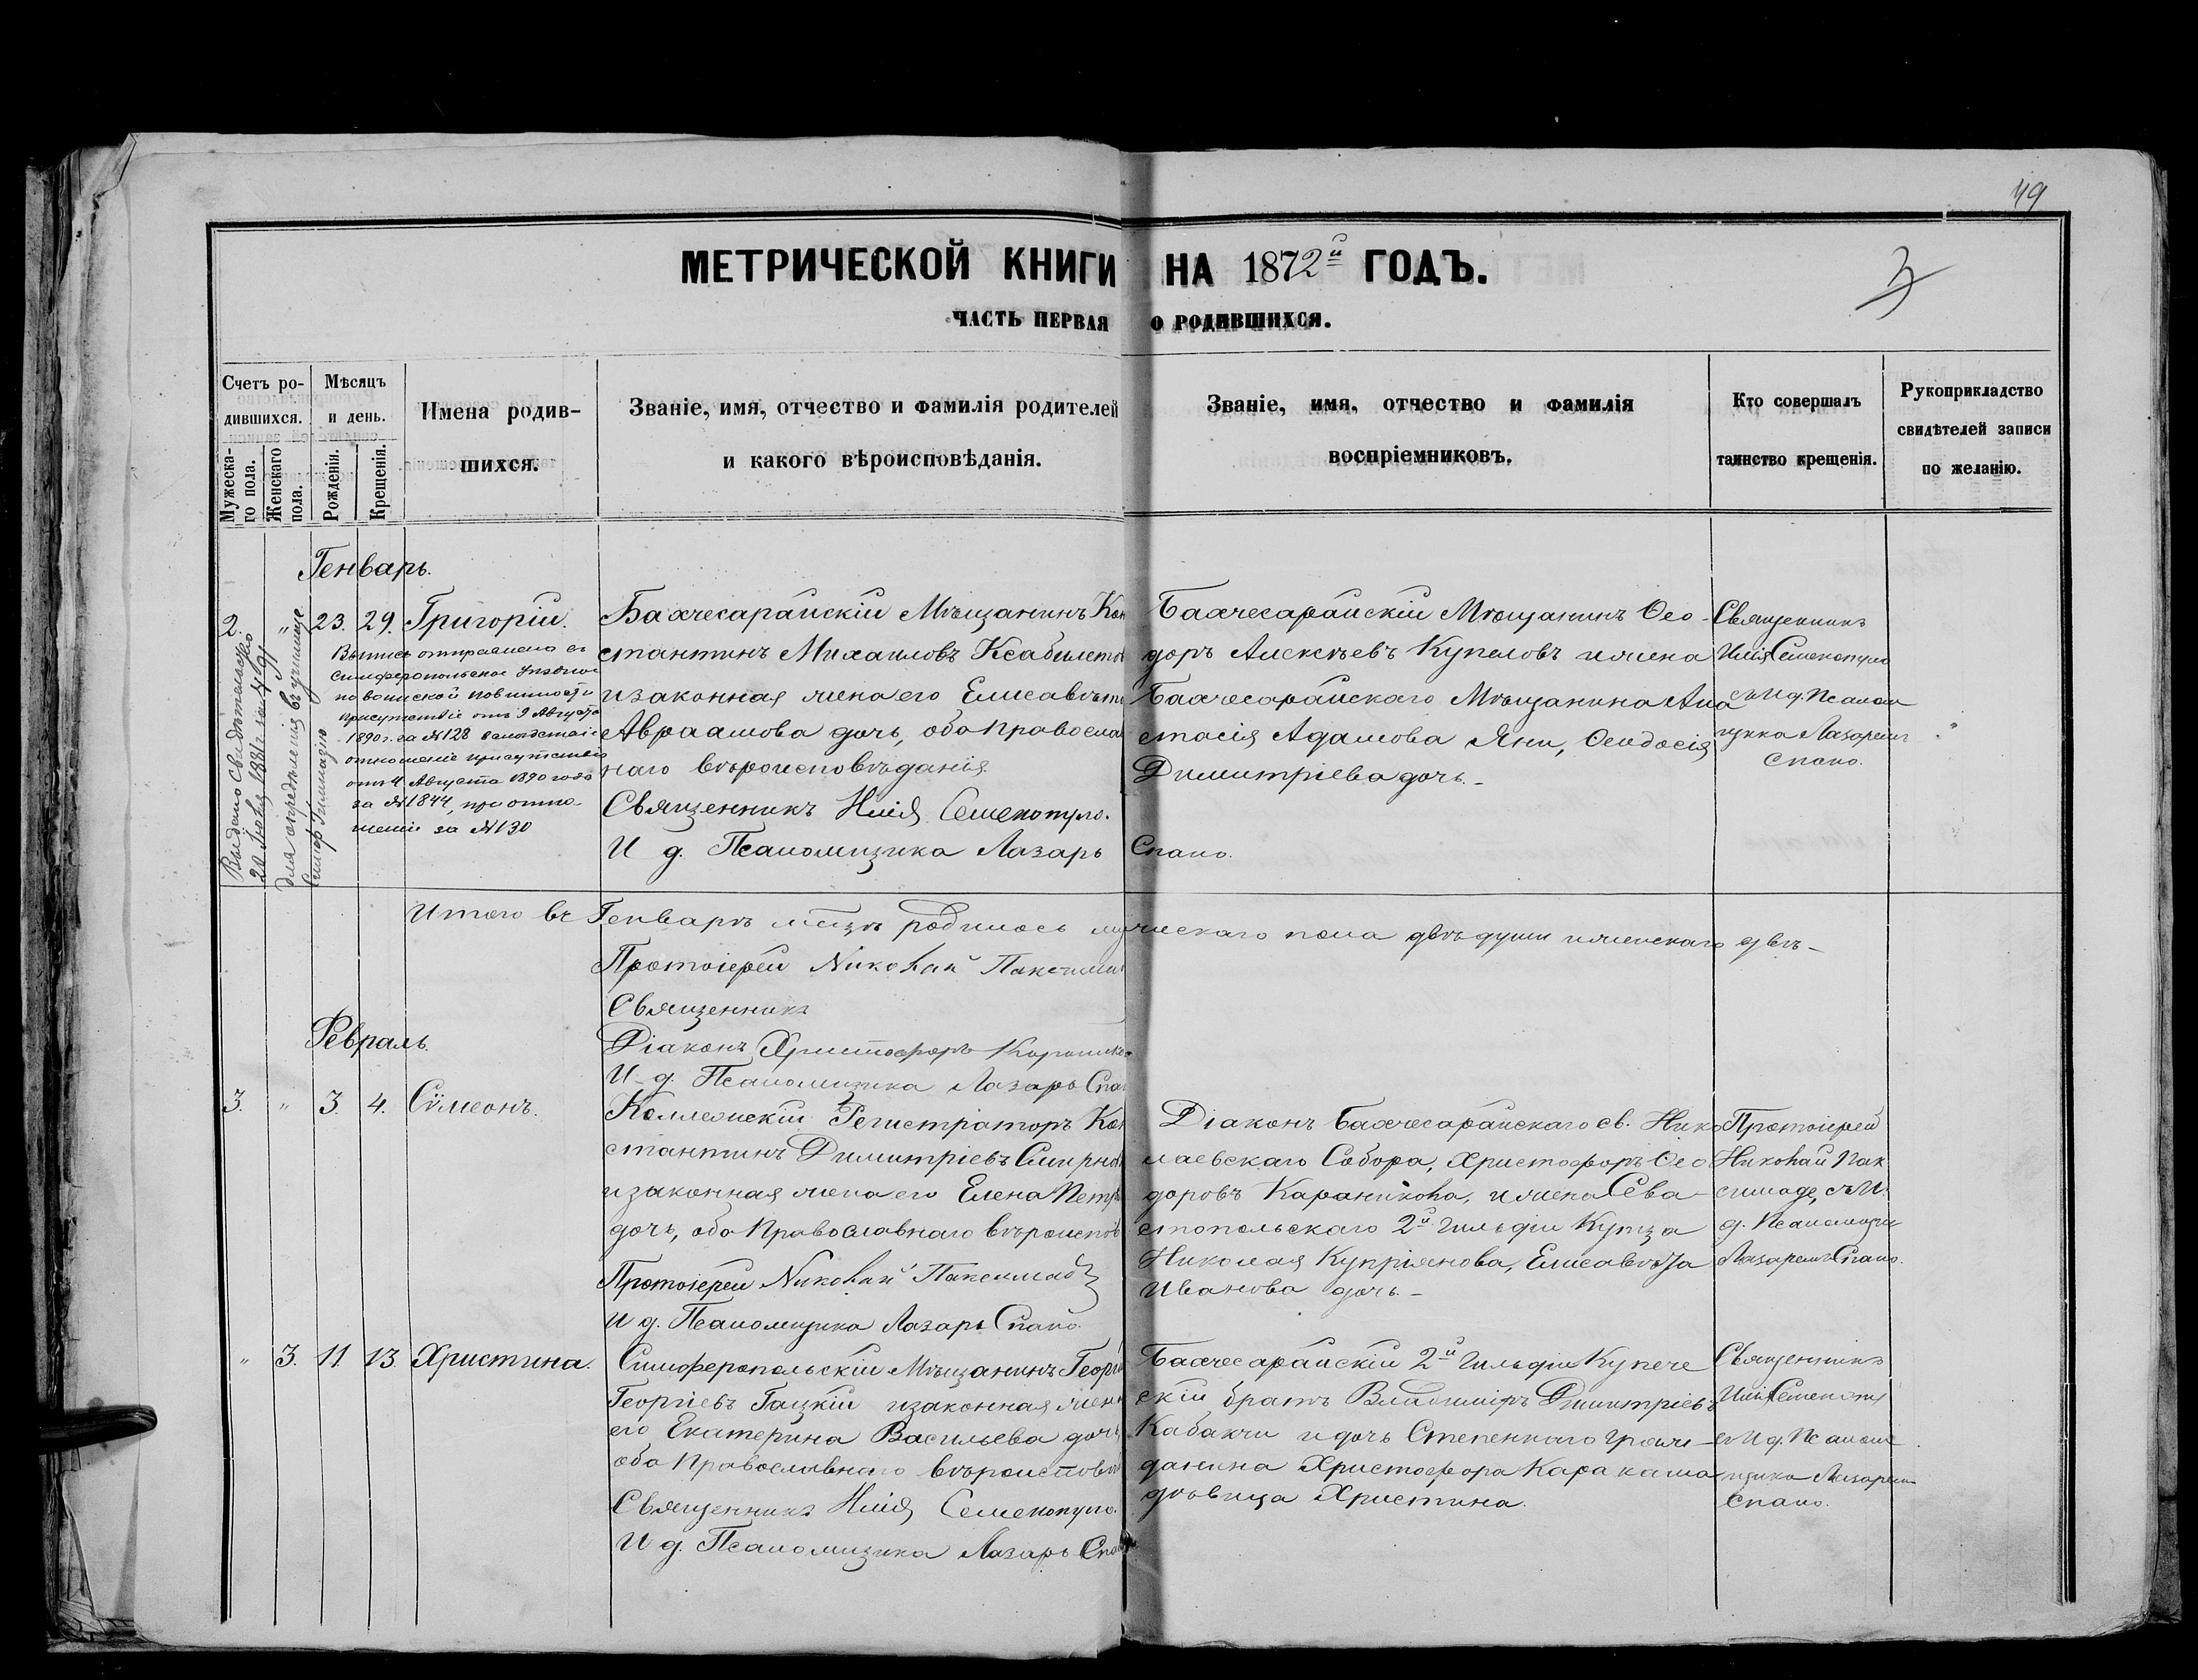 49
3
МЕТРИЧЕСКОЙ КНИГИ НА 1872й ГОДЪ.
ЧАСТЬ ПЕРВАЯ О РОДИВШИХСЯ.
Счетъ ро-
дившихся.
Мужеска-
го пола.
Женскаго
пола.
Мѣсяцъ
и день.
Рожденія.
Крещенія.
Имена родив-
шихся.
Званіе, имя, отчество и фамилія родителей
и какого вѣроисповѣданія.
Званіе, имя, отчество и фамилія
воспріемниковъ.
Кто совершалъ
таинство крещенія.
Рукоприкладство
свидѣтелей записи
по желанію.
Генварь.
2. " 23. 29. Григорій.
Выпись отправлена въ
Симферопольское Уѣздное
по воинской повинности
присутствіе отъ 9 Августа
1890 г. за №128 вслѣдствіе
отношенія присутствія
отъ 4 Августа 1890 года
за №1844, при отно-
шеніи за №130
Выдано свидѣтельство
20 Іюня 1881 г. за №91
для опредѣленія въ училище
Симф. Гимназію
Бахчесарайскій Мѣщанинъ Кон
стантинъ Михаиловъ
и законная жена его Елисавета
Авраамова дочь, оба Православ
наго вѣроисповѣданія.
Священникъ Илія Семенопуло.
И д. Псаломщика Лазарь Спано.
Бахчесарайскій Мѣщанинъ Ѳео-
доръ Алексѣевъ Купаловъ и жена
Бахчесарайскаго Мѣщанина Ана
стасія Адамова Яни, Ѳеодосія
Димитріева дочь.-
Священникъ
Илія Семенопуло
съ И д. Псалом
щика Лазаремъ
Спано.
Итого въ Генварѣ мѣсяцѣ родилось мужескаго пола двѣ души и женскаго двѣ-
Протоіерей Николай Паксимад
Священникъ
Діаконъ Христофоръ Караникола
И д. Псаломщика Лазарь Спа
Февраль.
3. " 3. 4. Сѵмеонъ.
Коллежскій Регистраторъ Кон
стантинъ Димитріевъ Смирнов
и законная жена его Елена Петр
дочь, оба Православнаго вѣроиспов
Протоіерей Николай Паксимад
И д. Псаломщика Лазарь Спано.
Діаконъ Бахчесарайскаго св. Нико
лаевскаго Собора, Христофоръ Ѳео
доровъ Караникола, и жена Сева-
стопольскаго 2й Гильдіи Купца
Николая Купріянова, Елисавета
Иванова дочь.-
Протоіерей
Николай Пак
симаде, съ И.
д. Псаломщи
Лазаремъ Спано.
" 3. 11 13. Христина.
Симферопольскій Мѣщанинъ Георгі
Георгіевъ Гацкій и законная жен
его Екатерина Васильева дочь,
оба Православнаго вѣроисповѣ
Священникъ Илія Семенопуло.
И д. Псаломщика Лазарь Спано
Бахчесарайскій 2й Гильдіи Купече
скій братъ Владиміръ Димитріевъ
Кабакчи и дочь Степеннаго граж-
данина Христофора Каракаша
дѣвица Христина.
Священникъ
Илія Семенопу
съ И д. Псалом
щика Лазаремъ
Спано.